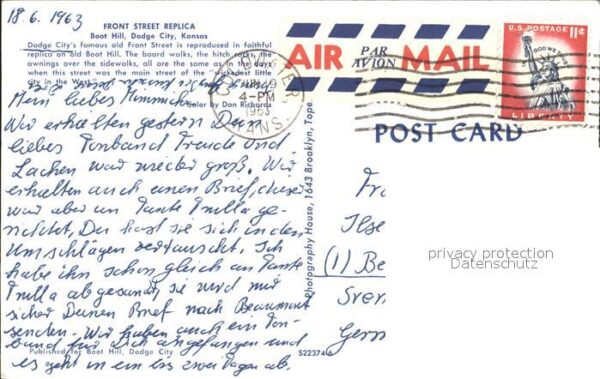 18.6.1963
FRONT STREET REPLICA
Boot Hill, Dodge City, Kansas
Dodge City's famous old Front Street is reproduced in faithful
replica on old Boot Hill. The board walks, the hitch racks, the
awnings over the sidewalks, all are the same as in the days
when this street was the main street of the "wickedest little
city in the West".
Color by Don Richards
Mein liebes
Wir erhielten gestern Dein
liebes Tonband Freude und
Lachen war wieder groß. Wir
erhielten auch einen Brief, dieser
war aber an Tante Trulla ge-
richtet, Du hast sie sich in den
Umschlägen vertauscht. Ich
habe ihn schon gleich an Tante
Trulla abgesandt, sie wird mir
sicher Deinen Brief nach Beaumont
senden. Wir haben auch ein Ton-
band für Dich angefangen und
es geht in ein bis zwei Tagen ab.
Published for Boot Hill, Dodge City
S22374
Photography House, 1643 Brooklyn, Tope
4-PM
1963
KANS
AIR MAIL
PAR
AVION
U.S. POSTAGE 11¢
IN GOD WE TRUST
LIBERTY
POST CARD
Fr
Ilse
(1) Be
Sver
Germ
privacy protection
Datenschutz